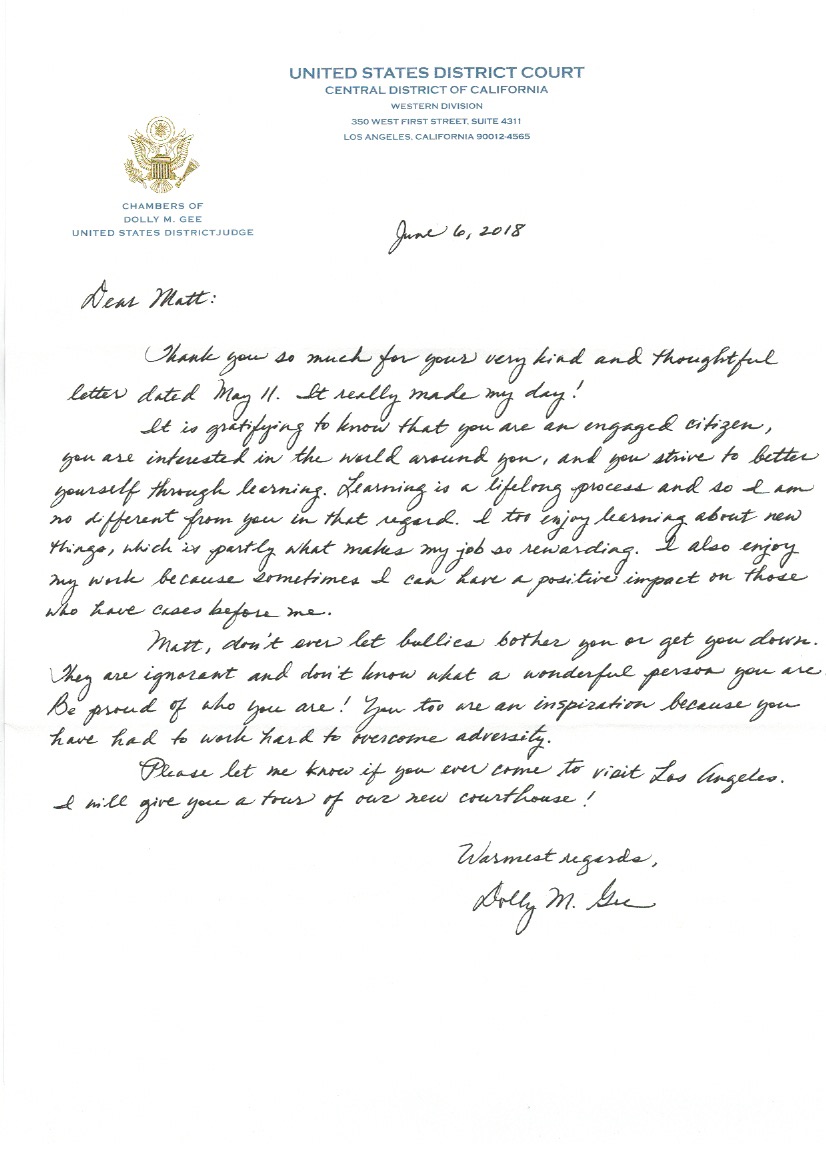 UNITED STATES DISTRICT COURT
CENTRAL DISTRICT OF CALIFORNIA
WESTERN DIVISION
350 WEST FIRST STREET, SUITE 4311
LOS ANGELES, CALIFORNIA 90012-4565
CHAMBERS OF
DOLLY M. GEE
UNITED STATES DISTRICT JUDGE
June 6, 2018
Dear Matt:
Thank you so much for your very kind and thoughtful
letter dated May 11. It really made my day!
It is gratifying to know that you are an engaged citizen,
you are interested in the world around you, and you strive to better
yourself through learning. Learning is a lifelong process and so I am
no different from you in that regard. I too enjoy learning about new
things, which is partly what makes my job so rewarding. I also enjoy
my work because sometimes I can have a positive impact on those
who have cases before me.
Matt, don't ever let bullies bother you or get you down.
They are ignorant and don't know what a wonderful person you are.
Be proud of who you are! You too are an inspiration because you
have had to work hard to overcome adversity.
Please let me know if you ever come to visit Los Angeles.
I will give you a tour of our new courthouse!
Warmest regards,
Dolly M. Gee